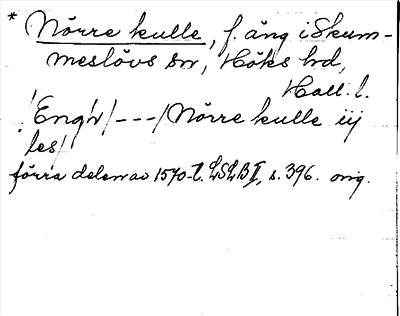 * Nörre kulle, f. äng i Skum-
meslövs sn, Höks hd,
Hall. l.
/Engh/---/Nörre kulle iij
les/
förra delen av 1570-t. LSLB II, s. 396. orig.